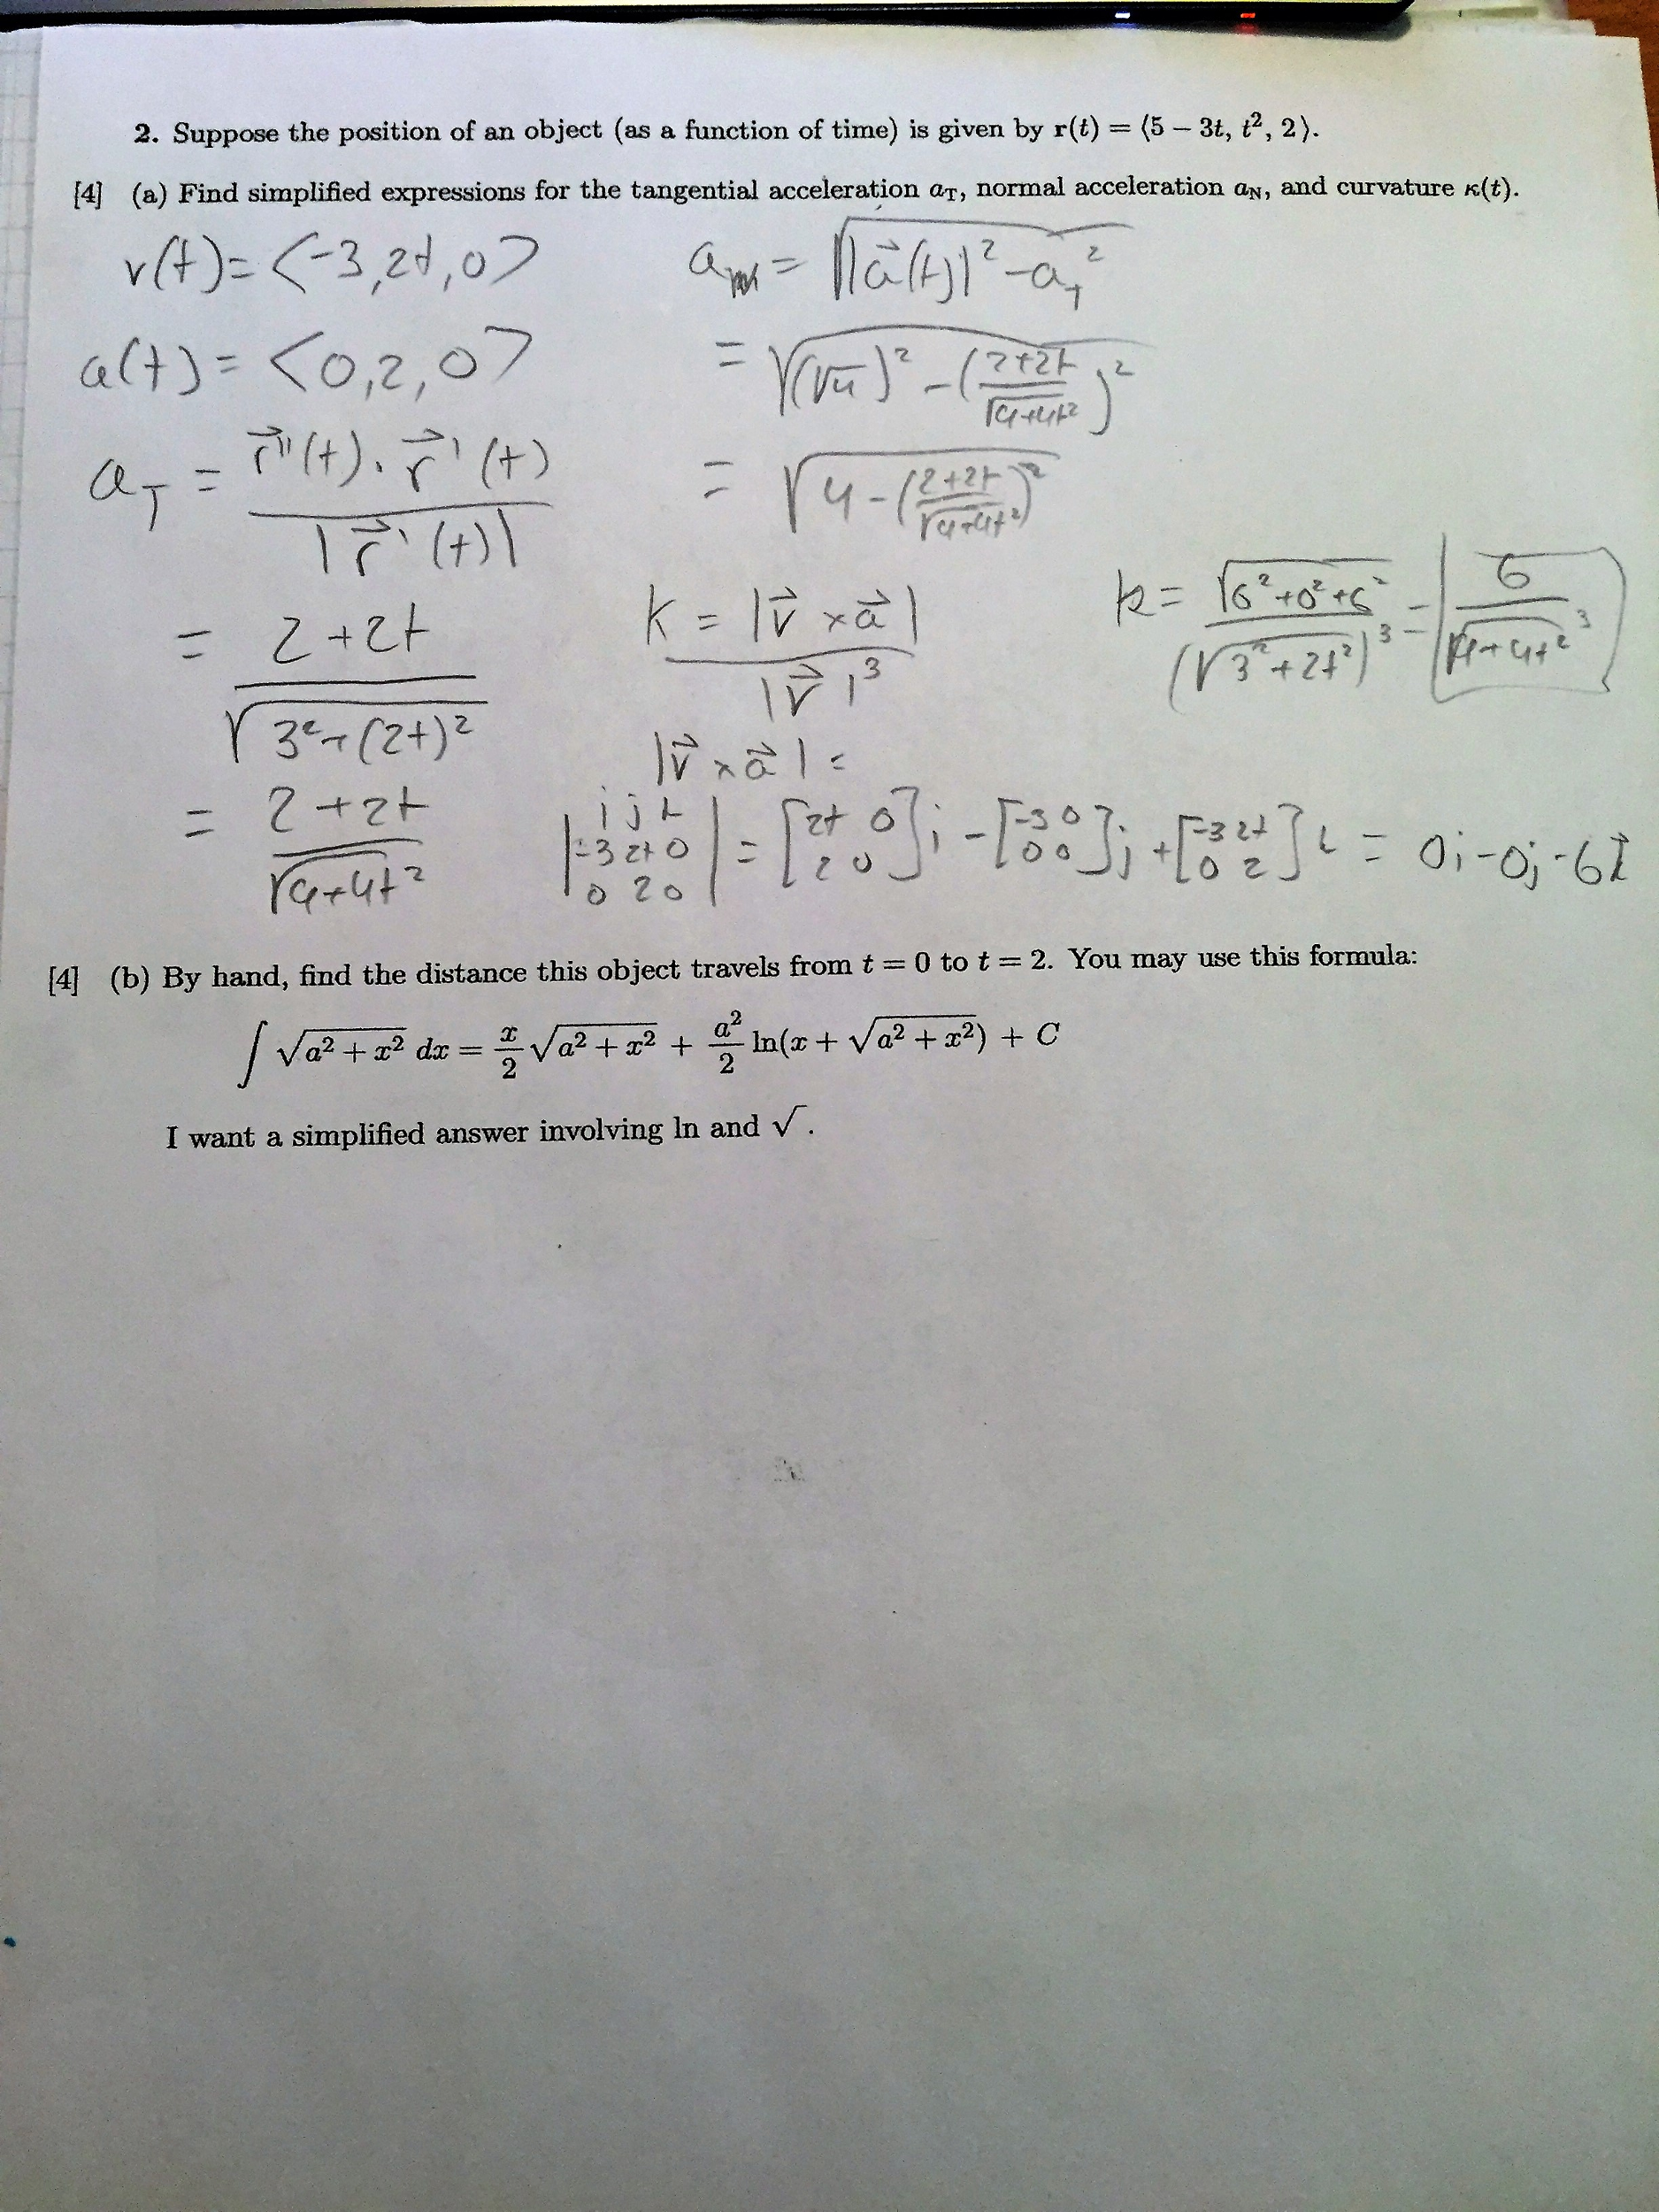 2. Suppose the position of an object (as a function of time) is given by r(t) = ⟨5 − 3t, t², 2⟩.
[4] (a) Find simplified expressions for the tangential acceleration a_T, normal acceleration a_N, and curvature κ(t).
v(t) = <-3, 2t, 0>
a(t) = <0, 2, 0>
a_T = r⃗''(t) · r⃗'(t) / |r⃗'(t)|
= 2+2t / √(3²+(2t)²)
= 2+2t / √(9+4t²)
a = √(|a⃗(t)|² - a_T²)
= √((√4)² - (2+2t / √(9+4t²))²)
= √(4 - (2+2t / √(9+4t²))²)
K = |v⃗ × a⃗| / |v⃗|³
|v⃗ × a⃗| =
|i j k; -3 2t 0; 0 2 0| = [2t 0; 2 0]i - [-3 0; 0 0]j + [-3 2t; 0 2]k = 0i - 0j - 6k⃗
k = √(6²+0²+6²) / (√(3²+2t²))³ = 6 / √(9+4t²)³
[4] (b) By hand, find the distance this object travels from t = 0 to t = 2. You may use this formula:
∫ √(a² + x²) dx = x/2 √(a² + x²) + a²/2 ln(x + √(a² + x²)) + C
I want a simplified answer involving ln and √ .